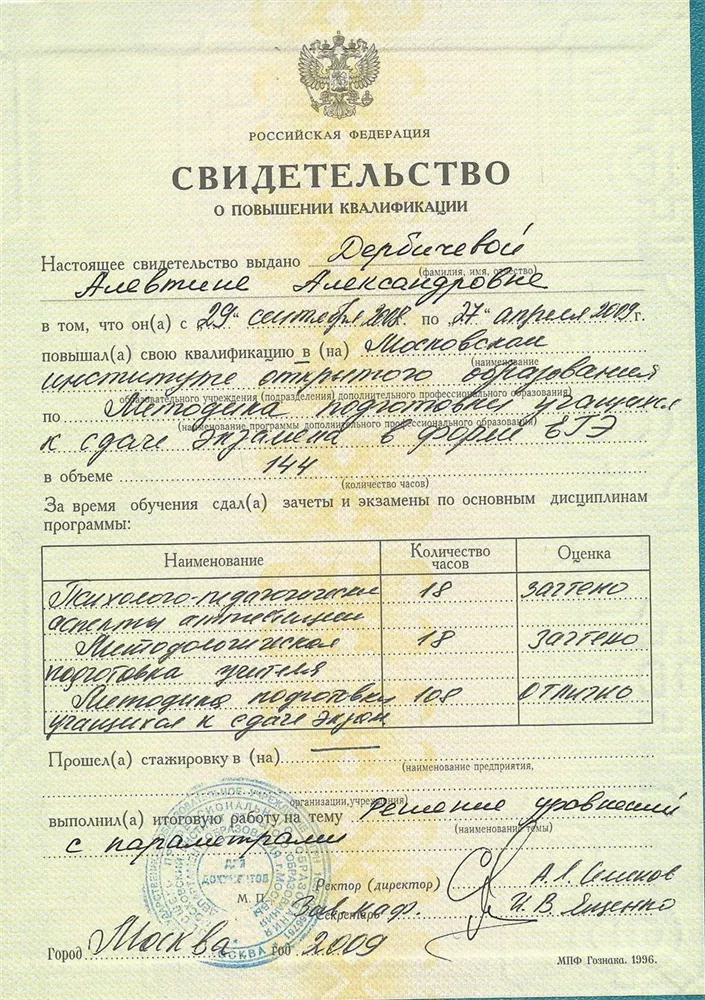 РОССИЙСКАЯ ФЕДЕРАЦИЯ
СВИДЕТЕЛЬСТВО
О ПОВЫШЕНИИ КВАЛИФИКАЦИИ
Настоящее свидетельство выдано Дербичевой
(фамилия, имя, отчество)
Алевтине Александровне
в том, что он(а) с „29“ сентября 2008г. по „27“ апреля 2009г.
повышал(а) свою квалификацию в (на) Московском
(наименование
институте открытого образования
образовательного учреждения (подразделения) дополнительного профессионального образования)
по Методика подготовки учащихся
(наименование программы дополнительного профессионального образования)
к сдаче экзамена в форме ЕГЭ
в объеме 144
(количество часов)
За время обучения сдал(а) зачеты и экзамены по основным дисциплинам
программы:
Наименование Количество часов Оценка
Психолого-педагогические 18 зачтено
аспекты аттестации
Методологическая 18 зачтено
подготовка учителя
Методика подготовки 108 отлично
учащихся к сдаче экзам.
Прошел(а) стажировку в (на) —
(наименование предприятия,
организации, учреждения)
выполнил(а) итоговую работу на тему Решение уравнений
(наименование темы)
с параметрами
ДЛЯ
ДОКУМЕНТОВ
Ректор (директор) А.Л. Семенов
М. П.
Секретарь Зав. каф. И.В. Ященко
Город Москва год 2009
МПФ Гознака. 1996.